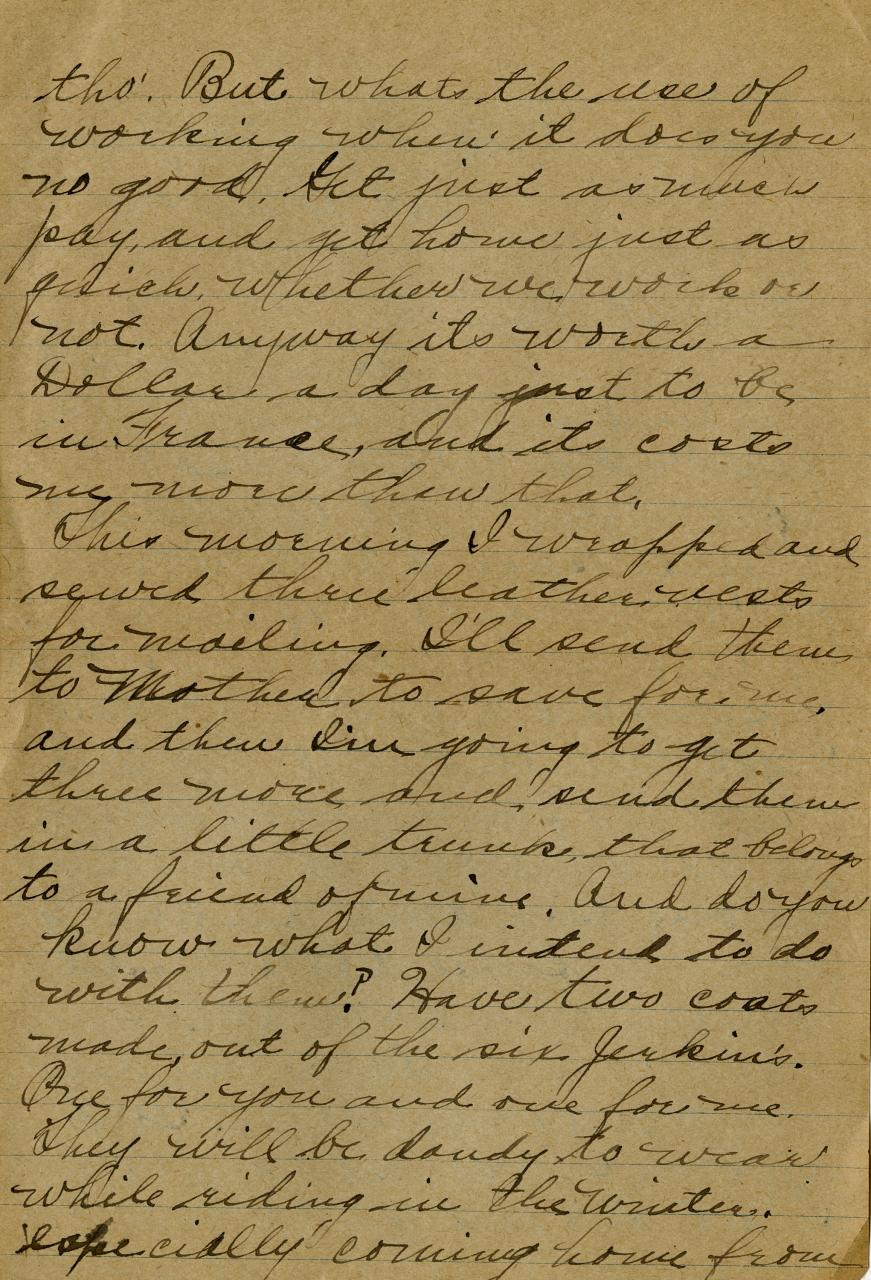 tho'. But whats the use of
working when it does you
no good. Get just as much
pay, and get home just as
quick, whether we work or
not. Anyway its worth a
Dollar a day just to be
in France, and its costs
me more than that.
This morning I wrapped and
sewed three leather vests
for mailing. I'll send them
to Mother to save for me,
and then I'm going to get
three more and send them
in a little trunk, that belongs
to a friend of mine. And do you
know what I intend to do
with them? Have two coats
made, out of the six Jerkin's.
One for you and one for me.
They will be dandy to wear
while riding in the Winter.
especially coming home from